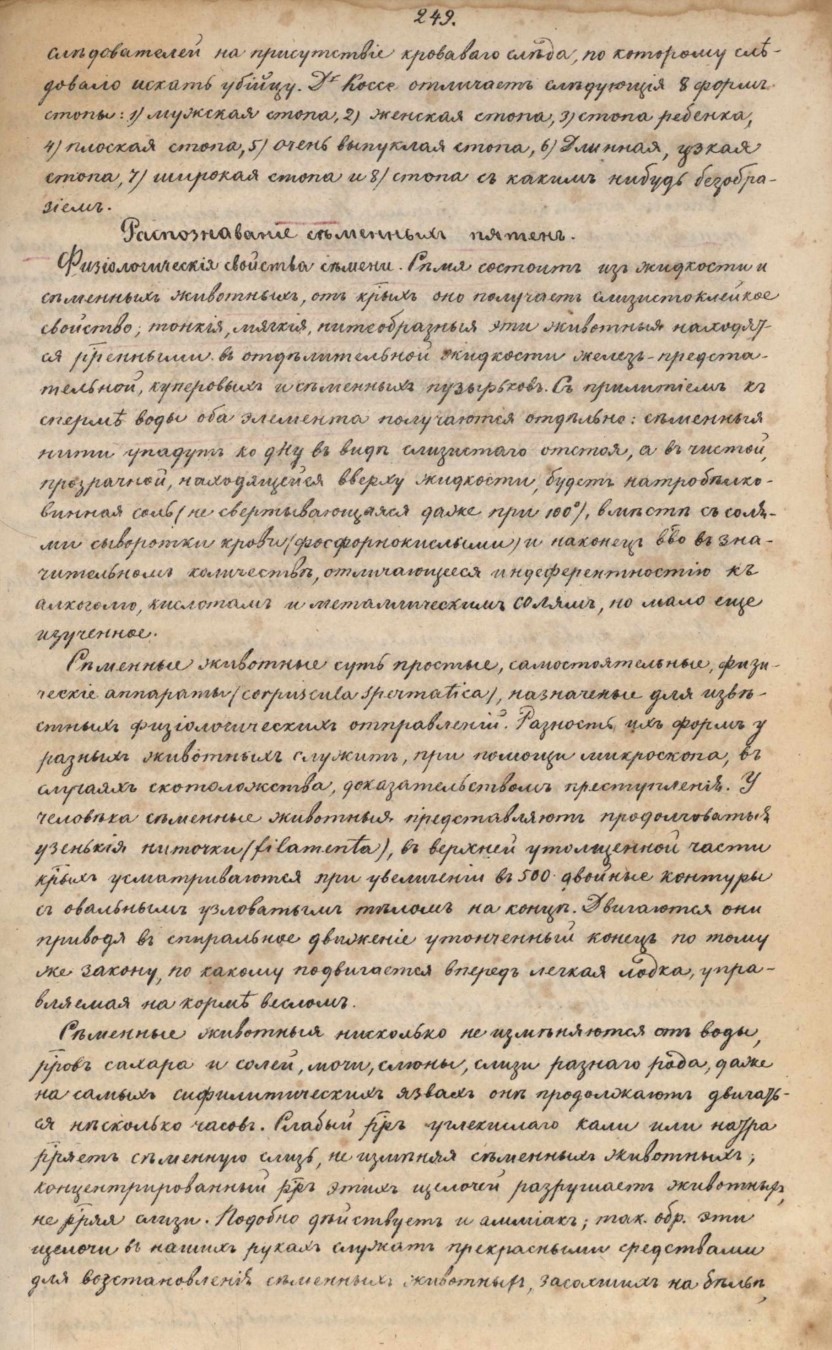 249.
слѣдователей на присутствіе кроваваго слѣда, по которому слѣ-
довало искать убійцу. Dr Коссе отличаетъ слѣдующія 8 формъ
стопы: 1) мужская стопа, 2) женская стопа, 3) стопа ребенка,
4) плоская стопа, 5) очень выпуклая стопа, 6) длинная, узкая
стопа, 7) широкая стопа и 8) стопа съ какимъ нибудь безобра-
зіемъ.
Распознаваніе сѣменныхъ пятенъ.
Физіологическія свойства сѣмени. Сѣмя состоитъ изъ жидкости и
сѣменныхъ животныхъ, отъ крыхъ оно получаетъ слизистоклейкое
свойство; тонкія, мягкія, нитеобразныя эти животныя находят-
ся рренными въ отдѣлительной жидкости железъ-предста-
тельной, куперовыхъ и сѣменныхъ пузырьковъ. Съ прилитіемъ къ
спермѣ воды оба элемента получаются отдѣльно: сѣменныя
нити упадутъ ко дну въ видѣ слизистаго отстоя, а въ чистой,
прозрачной, находящейся вверху жидкости, будетъ натробѣлко-
винная соль (не свертывающаяся даже при 100°), вмѣстѣ съ соля-
ми сыворотки крови (фосфорнокислыми) и наконецъ вво въ зна-
чительномъ количествѣ, отличающееся индеферентностію къ
алкоголю, кислотамъ и металлическимъ солямъ, но мало еще
изученное.
Сѣменные животные суть простые, самостоятельные, физи-
ческіе аппараты (corpuscula spermatica), назначеные для извѣ-
стныхъ физіологическихъ отправленій. Разность ихъ формъ у
разныхъ животныхъ служитъ, при помощи микроскопа, въ
случаяхъ скотоложства, доказательствомъ преступленія. У
человѣка сѣменные животныя представляютъ продолговатыя
узенькія ниточки (filamenta), въ верхней утолщенной части
крыхъ усматриваются при увеличеніи въ 500 двойные контуры
съ овальнымъ узловатымъ тѣломъ на концѣ. Двигаются они
приводя въ спиральное движеніе утонченный конецъ по тому
же закону, по какому подвигается впередъ легкая лодка, упра-
вляемая на кормѣ весломъ.
Сѣменные животныя нисколько не измѣняются отъ воды,
рровъ сахара и солей, мочи, слюны, слизи разнаго рода, даже
на самыхъ сифилитическихъ язвахъ онѣ продолжаютъ двигать-
ся нѣсколько часовъ. Слабый рръ углекислаго кали или натра
рряетъ сѣменную слизь, не измѣняя сѣменныхъ животныхъ;
концентрированный рръ этихъ щелочей разрушаетъ животныя,
не рряя слизи. Подобно дѣйствуетъ и амміакъ; так. обр. эти
щелочи въ нашихъ рукахъ служатъ прекрасными средствами
для возстановленія сѣменныхъ животныя, засохшихъ на бѣльѣ,